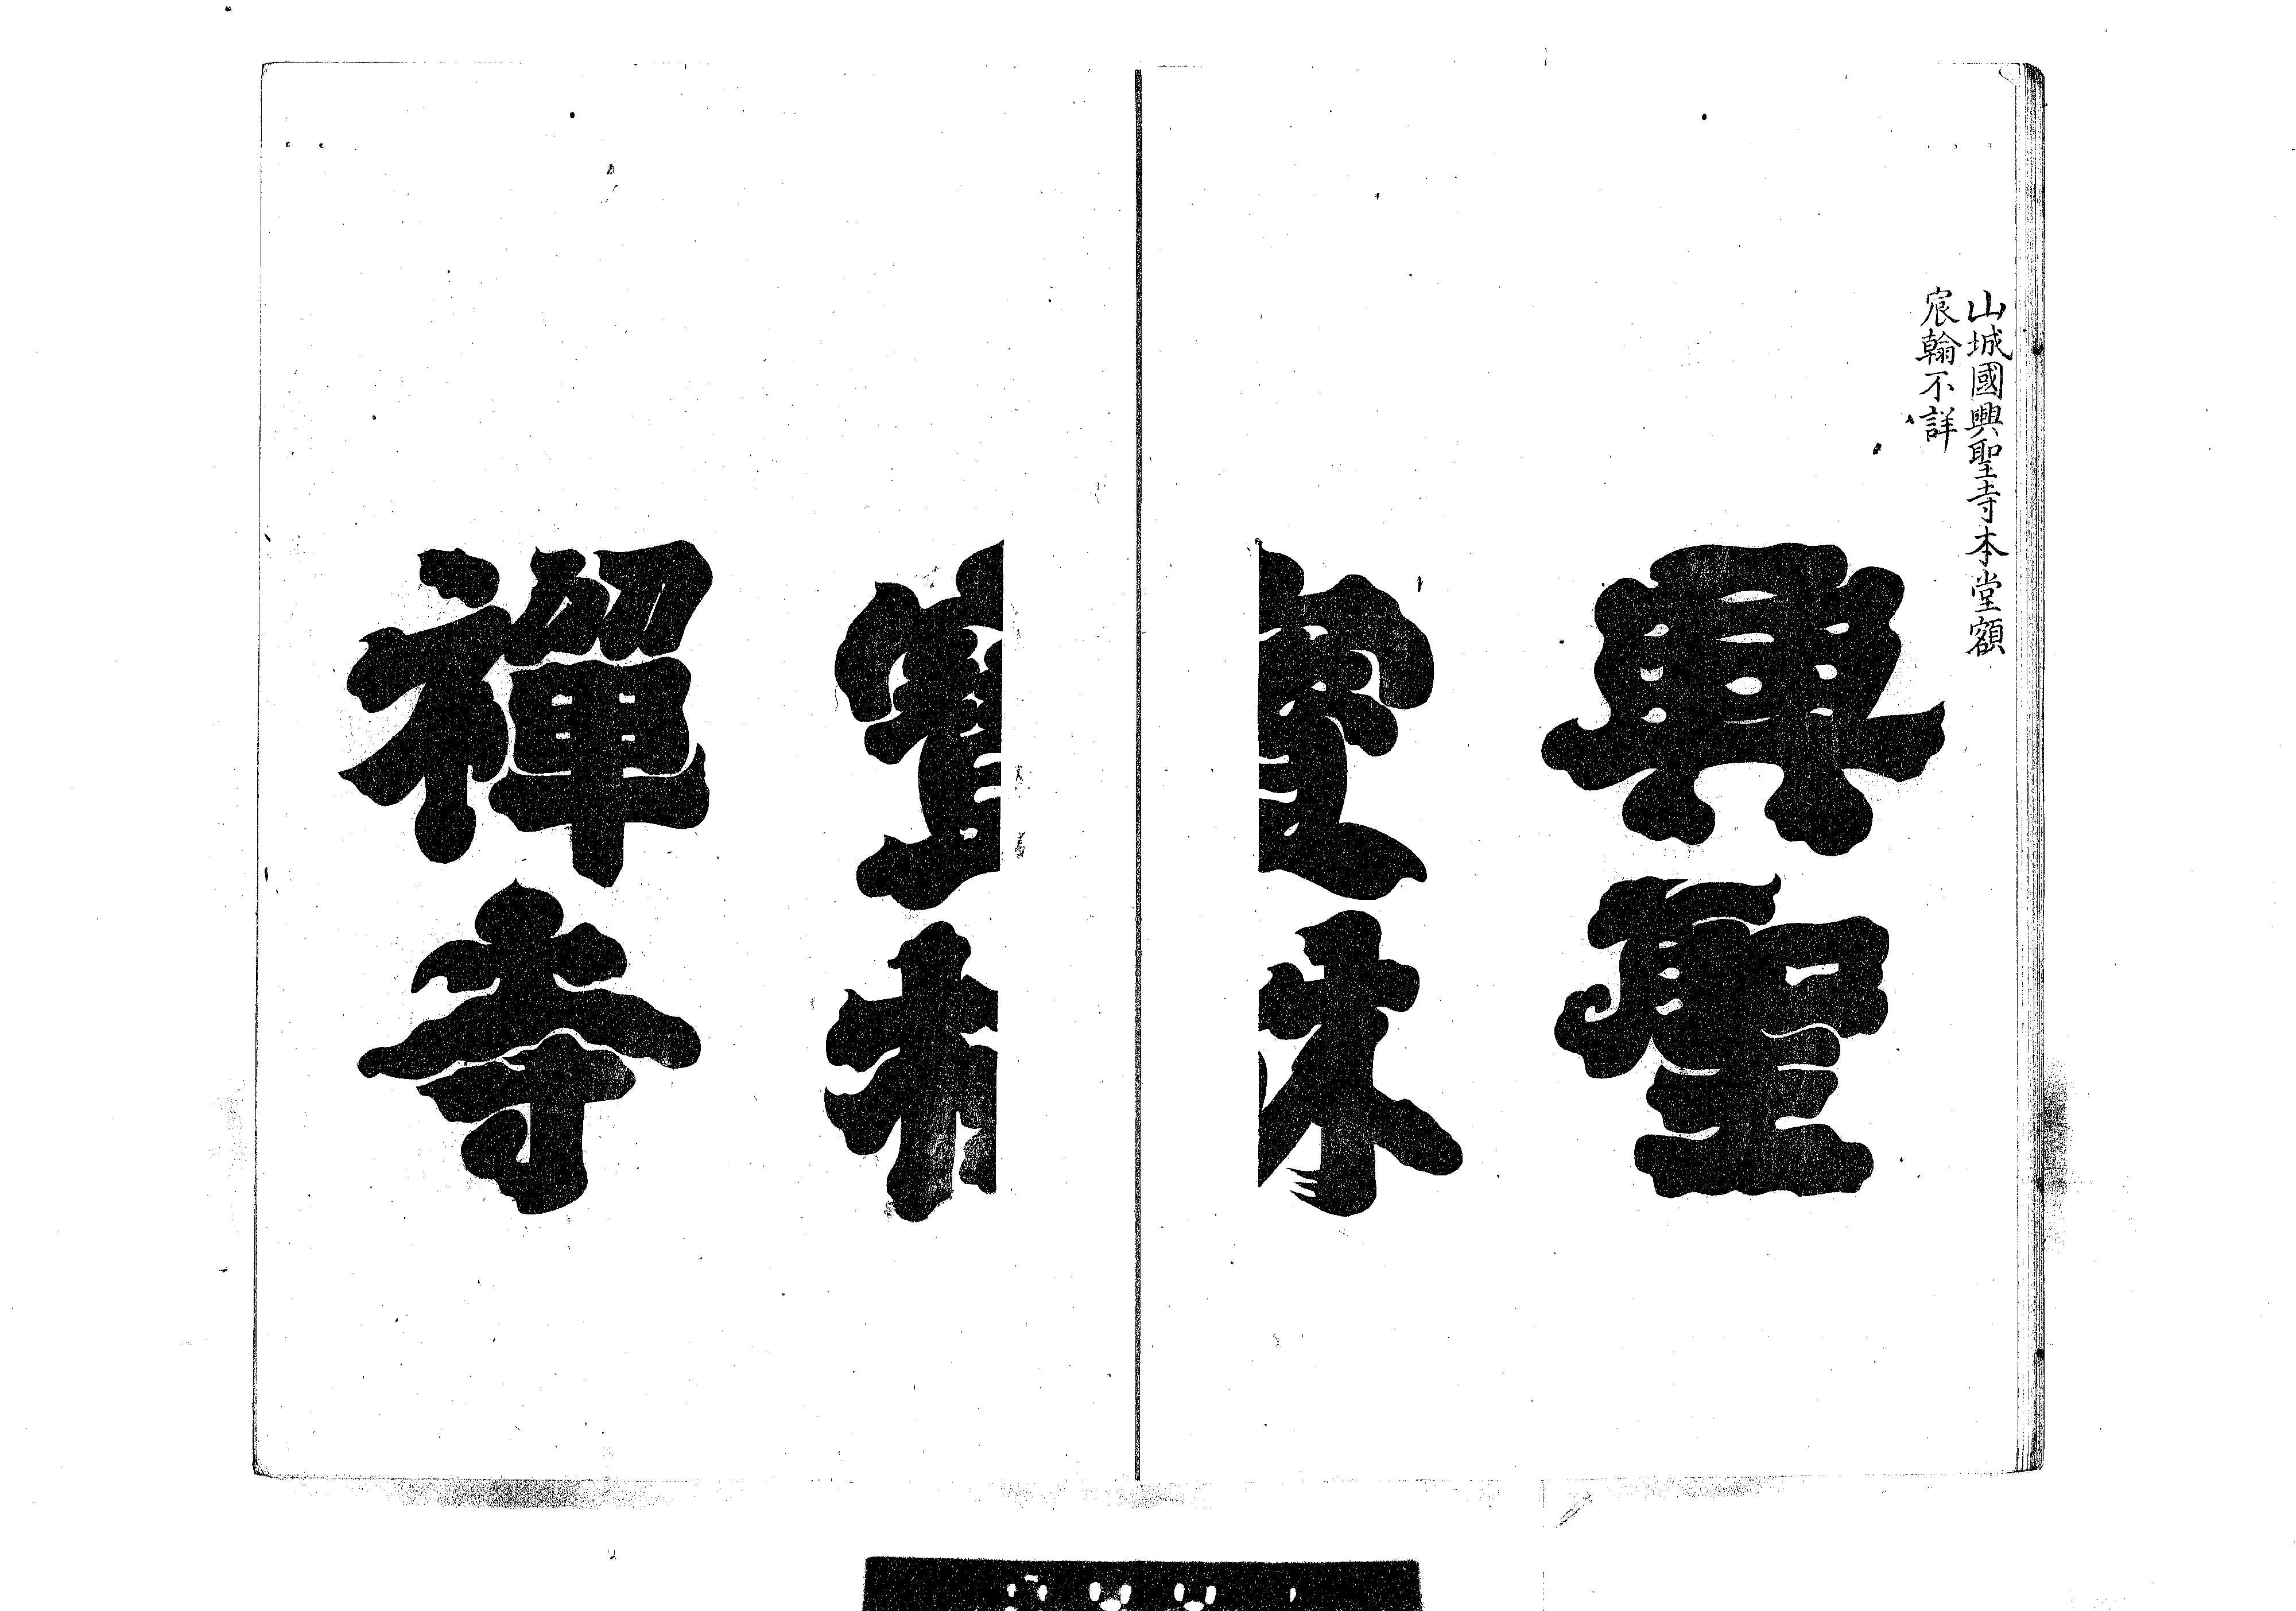 山城國興聖寺本堂額
宸翰不詳
興聖
寶林
禪寺